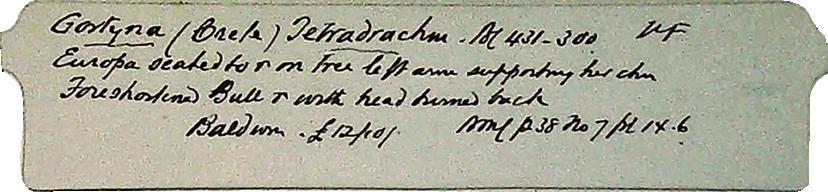 Gortyna (Crete) Tetradrachm. BC 431-300 VF
Europa seated to r on tree left arm supporting her chin
Foreshortened Bull r with head turned back
Baldwin. £12/10/ BMC p 38 No 7 pl IX.6